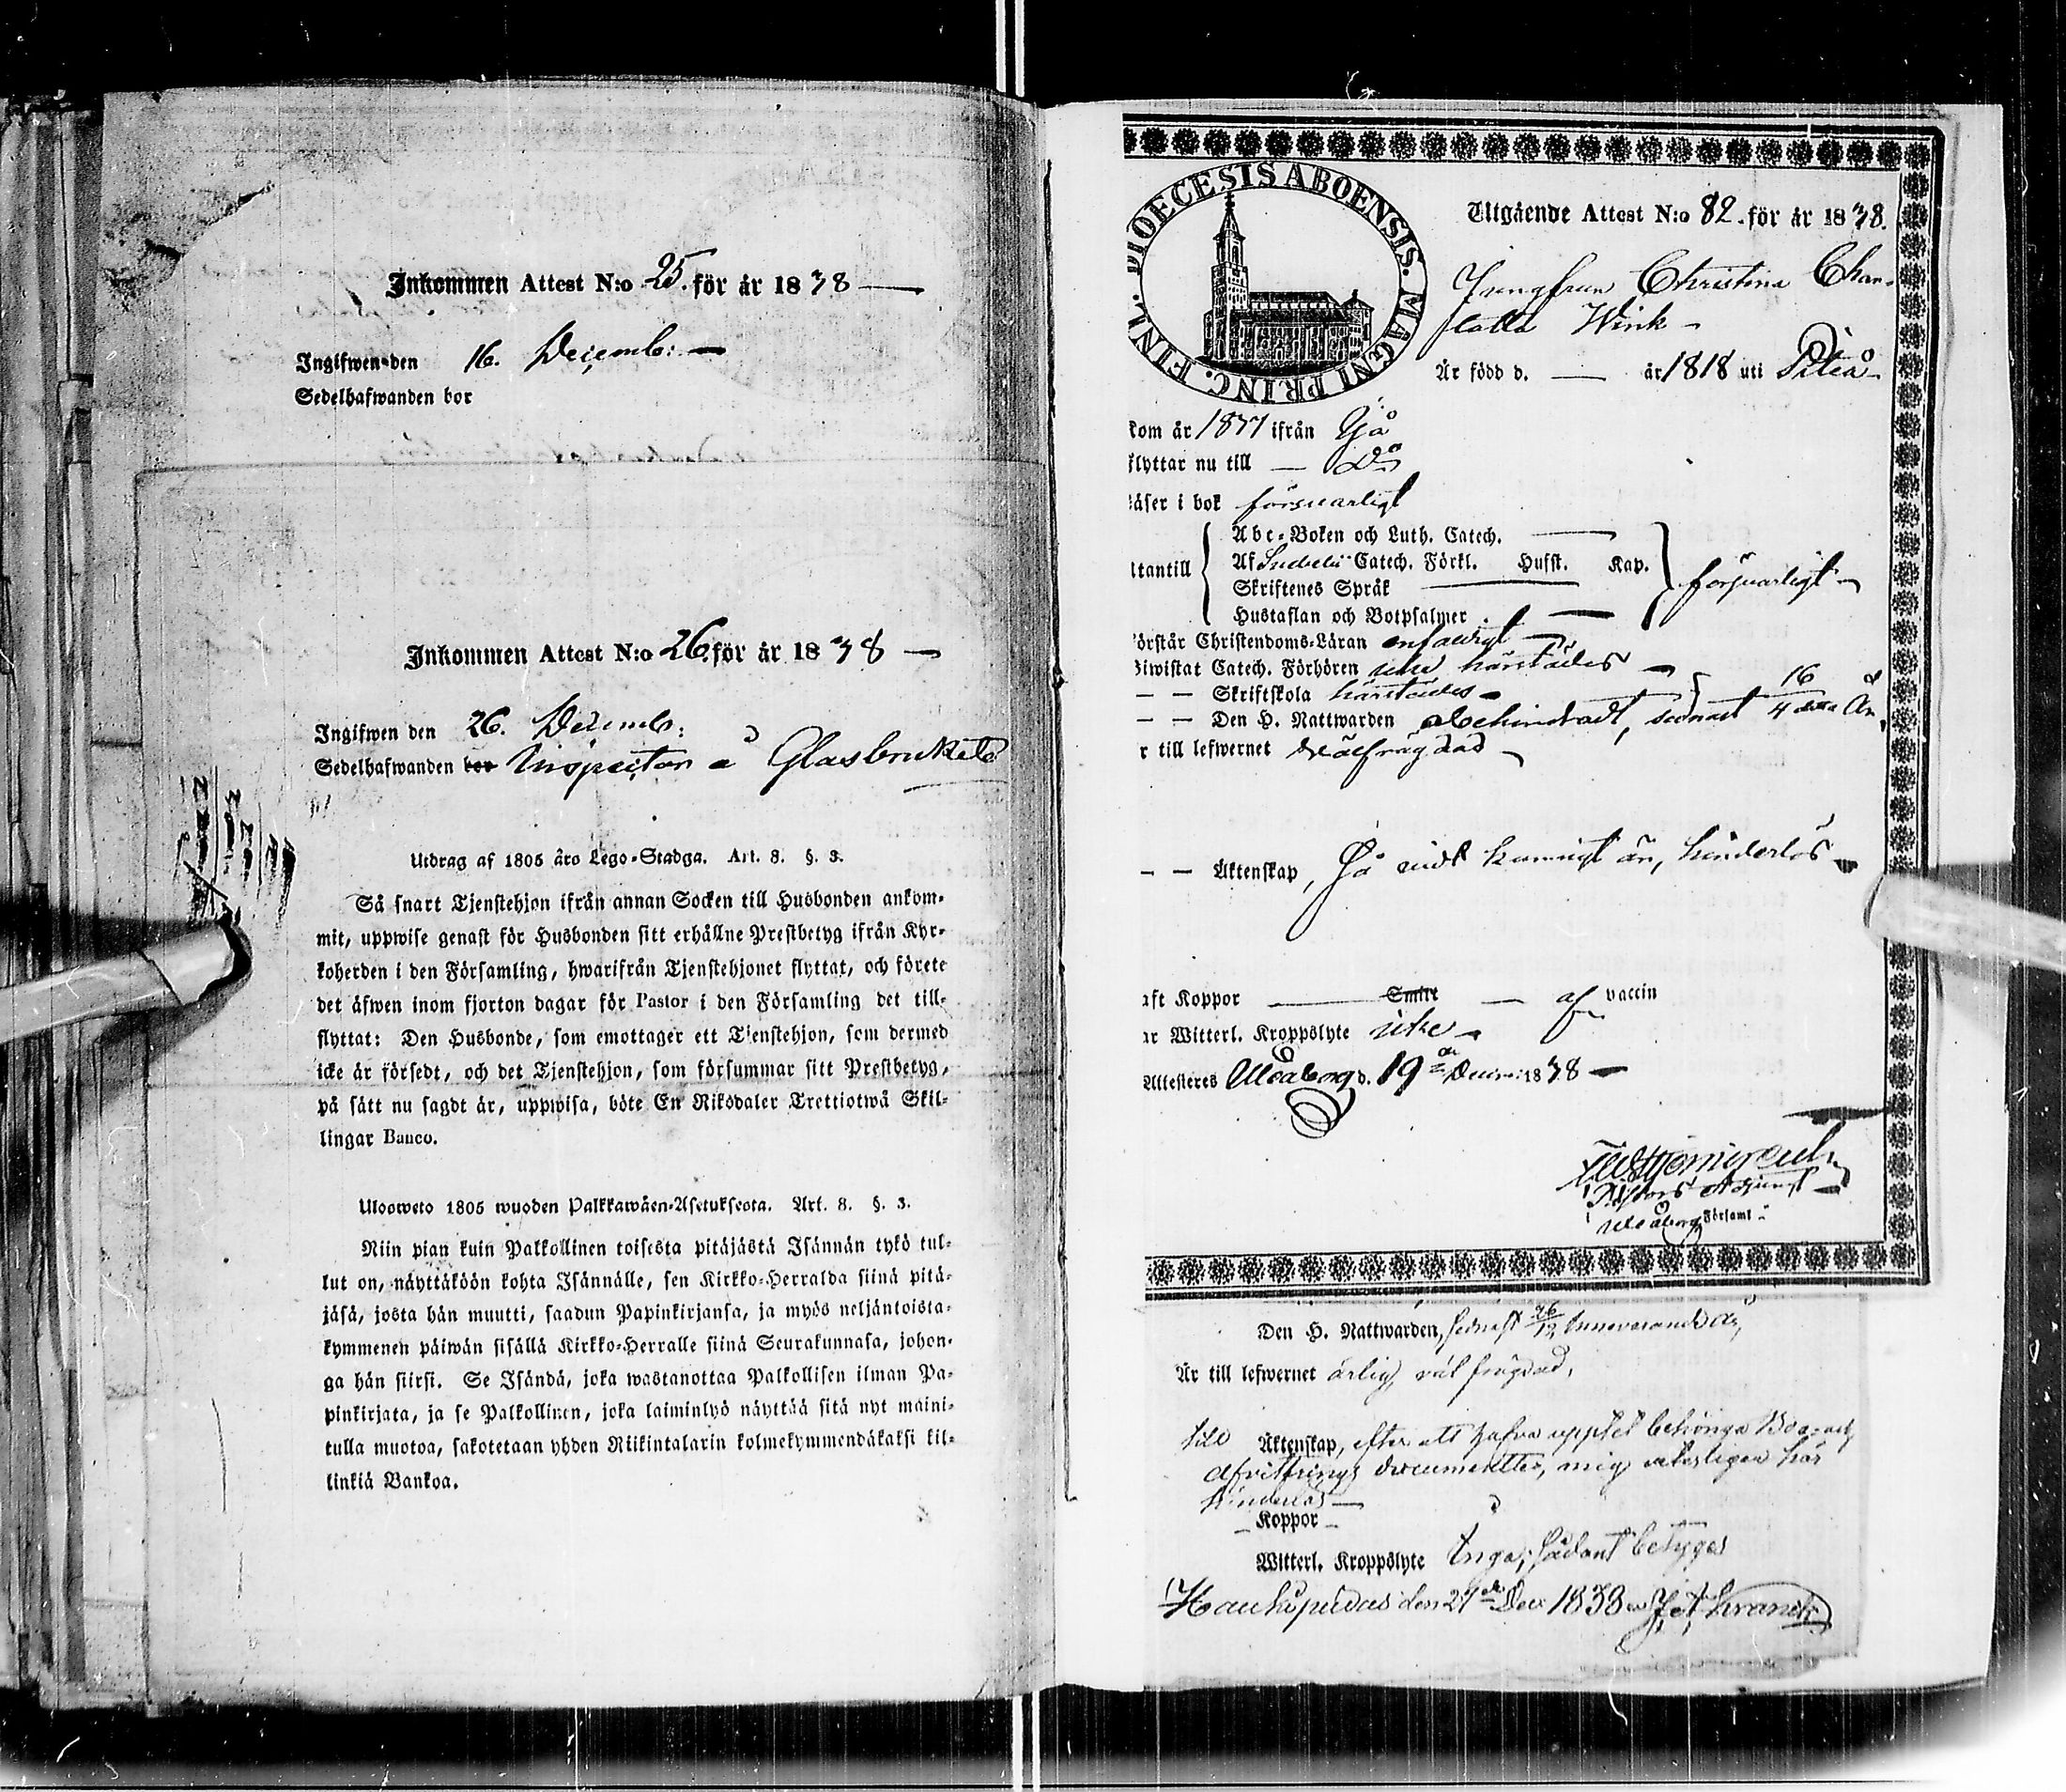 Inkommen Attest N:o 25. för år 1838
Ingifwen den 16. Decemb:
Sedelhafwanden bor
Inkommen Attest N:o 26. för år 1838
Ingifwen den 26. Decemb:
Sedelhafwanden bor Inspector å Glasbruket
Utdrag af 1805 års Lego-Stadga. Art. 8. §. 3.
Så snart Tjenstehjon ifrån annan Socken till Husbonden ankom-
mit, uppwise genast för Husbonden sitt erhållne Prestbetyg ifrån Kyr-
koherden i den Församling, hwarifrån Tjenstehjonet flyttat, och förete
det äfwen inom fjorton dagar för Pastor i den Församling det till-
flyttat: Den Husbonde, som emottager ett Tjenstehjon, som dermed
icke är försedt, och det Tjenstehjon, som försummar sitt Prestbetyg,
på sätt nu sagdt är, uppwisa, böte En Riksdaler Trettiotwå Skil-
lingar Banco.
Ulosweto 1805 wuoden Palkkawäen-Asetuksesta. Art. 8. §. 3.
Niin pian kuin Palkollinen toisesta pitäjästä Isännän tykö tul-
lut on, näyttäköön kohta Isännälle, sen Kirkko-Herralda siinä pitä-
jäsä, josta hän muutti, saadun Papinkirjansa, ja myös neljäntoista-
kymmenen päiwän sisällä Kirkko-Herralle siinä Seurakunnasa, johon-
ga hän siirsi. Se Isändä, joka wastanottaa Palkollisen ilman Pa-
pinkirjata, ja se Palkollinen, joka laiminlyö näyttää sitä nyt maini-
tulla muotoa, sakotetaan yhden Riikintalarin kolmekymmendäkaksi kil-
linkiä Bankoa.
DIOECESIS ABOENSIS. MAGNI PRINC. FINL.
Utgående Attest N:o 82. för år 1838.
Jungfrun Christina Char-
lotta Wink
Är född d. — år 1818 uti Piteå
kom år 1837 ifrån
flyttar nu till — Do
läser i bok försvarligt
Abc-Boken och Luth. Catech.
tantill Af Svebelii Catech. Förkl. Husst. Kap. försvarligt
Skriftenes Språk
Hustaflan och Botpsalmer
örstår Christendoms-Läran enfaldigt
Biwistat Catech. Förhören härstädes
— — Skriftskola härstädes
— — Den H. Nattwarden obehindradt, sednast 16/4 detta År,
r till lefwernet wälfrägdad
— — Äktenskap, så widt kunnigt är, hinderlös
aft Koppor — Smitt — af vaccin
ar Witterl. Kroppslyte icke
Attesteres Uleåborg d. 19de Decem: 1838
Pastors Adjunct
Uleåborg Församl:
Den H. Nattwarden, sednast 26/12 innevarande år,
Är till lefwernet ärlig, väl frägdad,
till Äktenskap, efter att hafva uppted behöriga Boa- och
Afvittrings documenter, mig veterligen här
hinderlös
Koppor
Witterl. Kroppslyte Inga; sådant betygar
Haukipudas den 27de Dec 1838